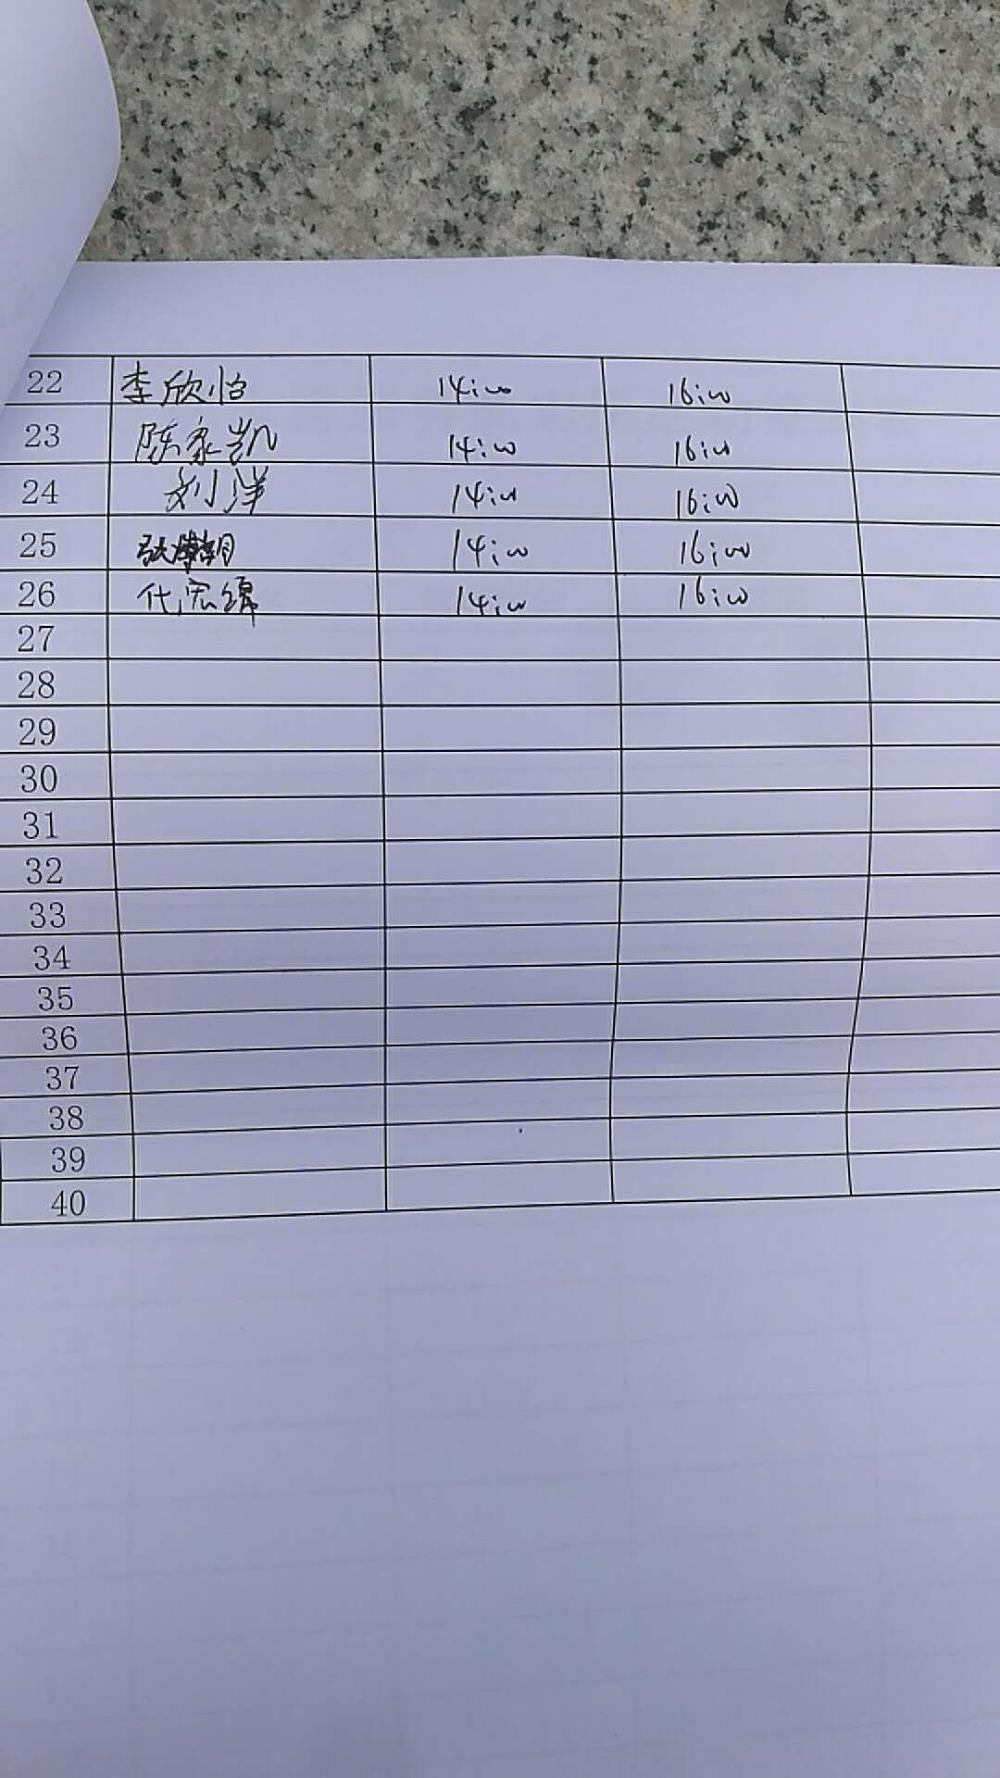 22 李欣怡 14:00 16:00
23 陈家凯 14:00 16:00
24 刘洋 14:00 16:00
25 张 14:00 16:00
26 代宏锦 14:00 16:00
27
28
29
30
31
32
33
34
35
36
37
38
39
40